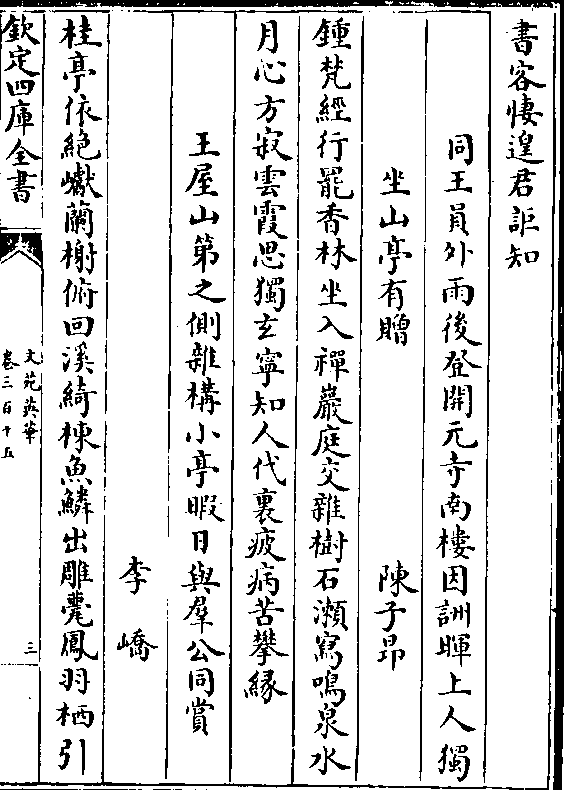 書客悽遑君詎知
同王員外雨後登開元寺南樓因詶暉上人獨
坐山亭有贈　陳子昂
鍾梵經行罷香林坐入禪巖庭交雜樹石瀬寫鳴泉水
月心方寂雲霞思獨玄寧知人代裏疲病苦攀緣
王屋山第之側雜構小亭暇日與羣公同賞
李嶠
桂亭依絶巘蘭榭俯回溪綺棟魚鱗出雕甍鳳羽栖引
欽定四庫全書
文苑英華
卷三百十五
三